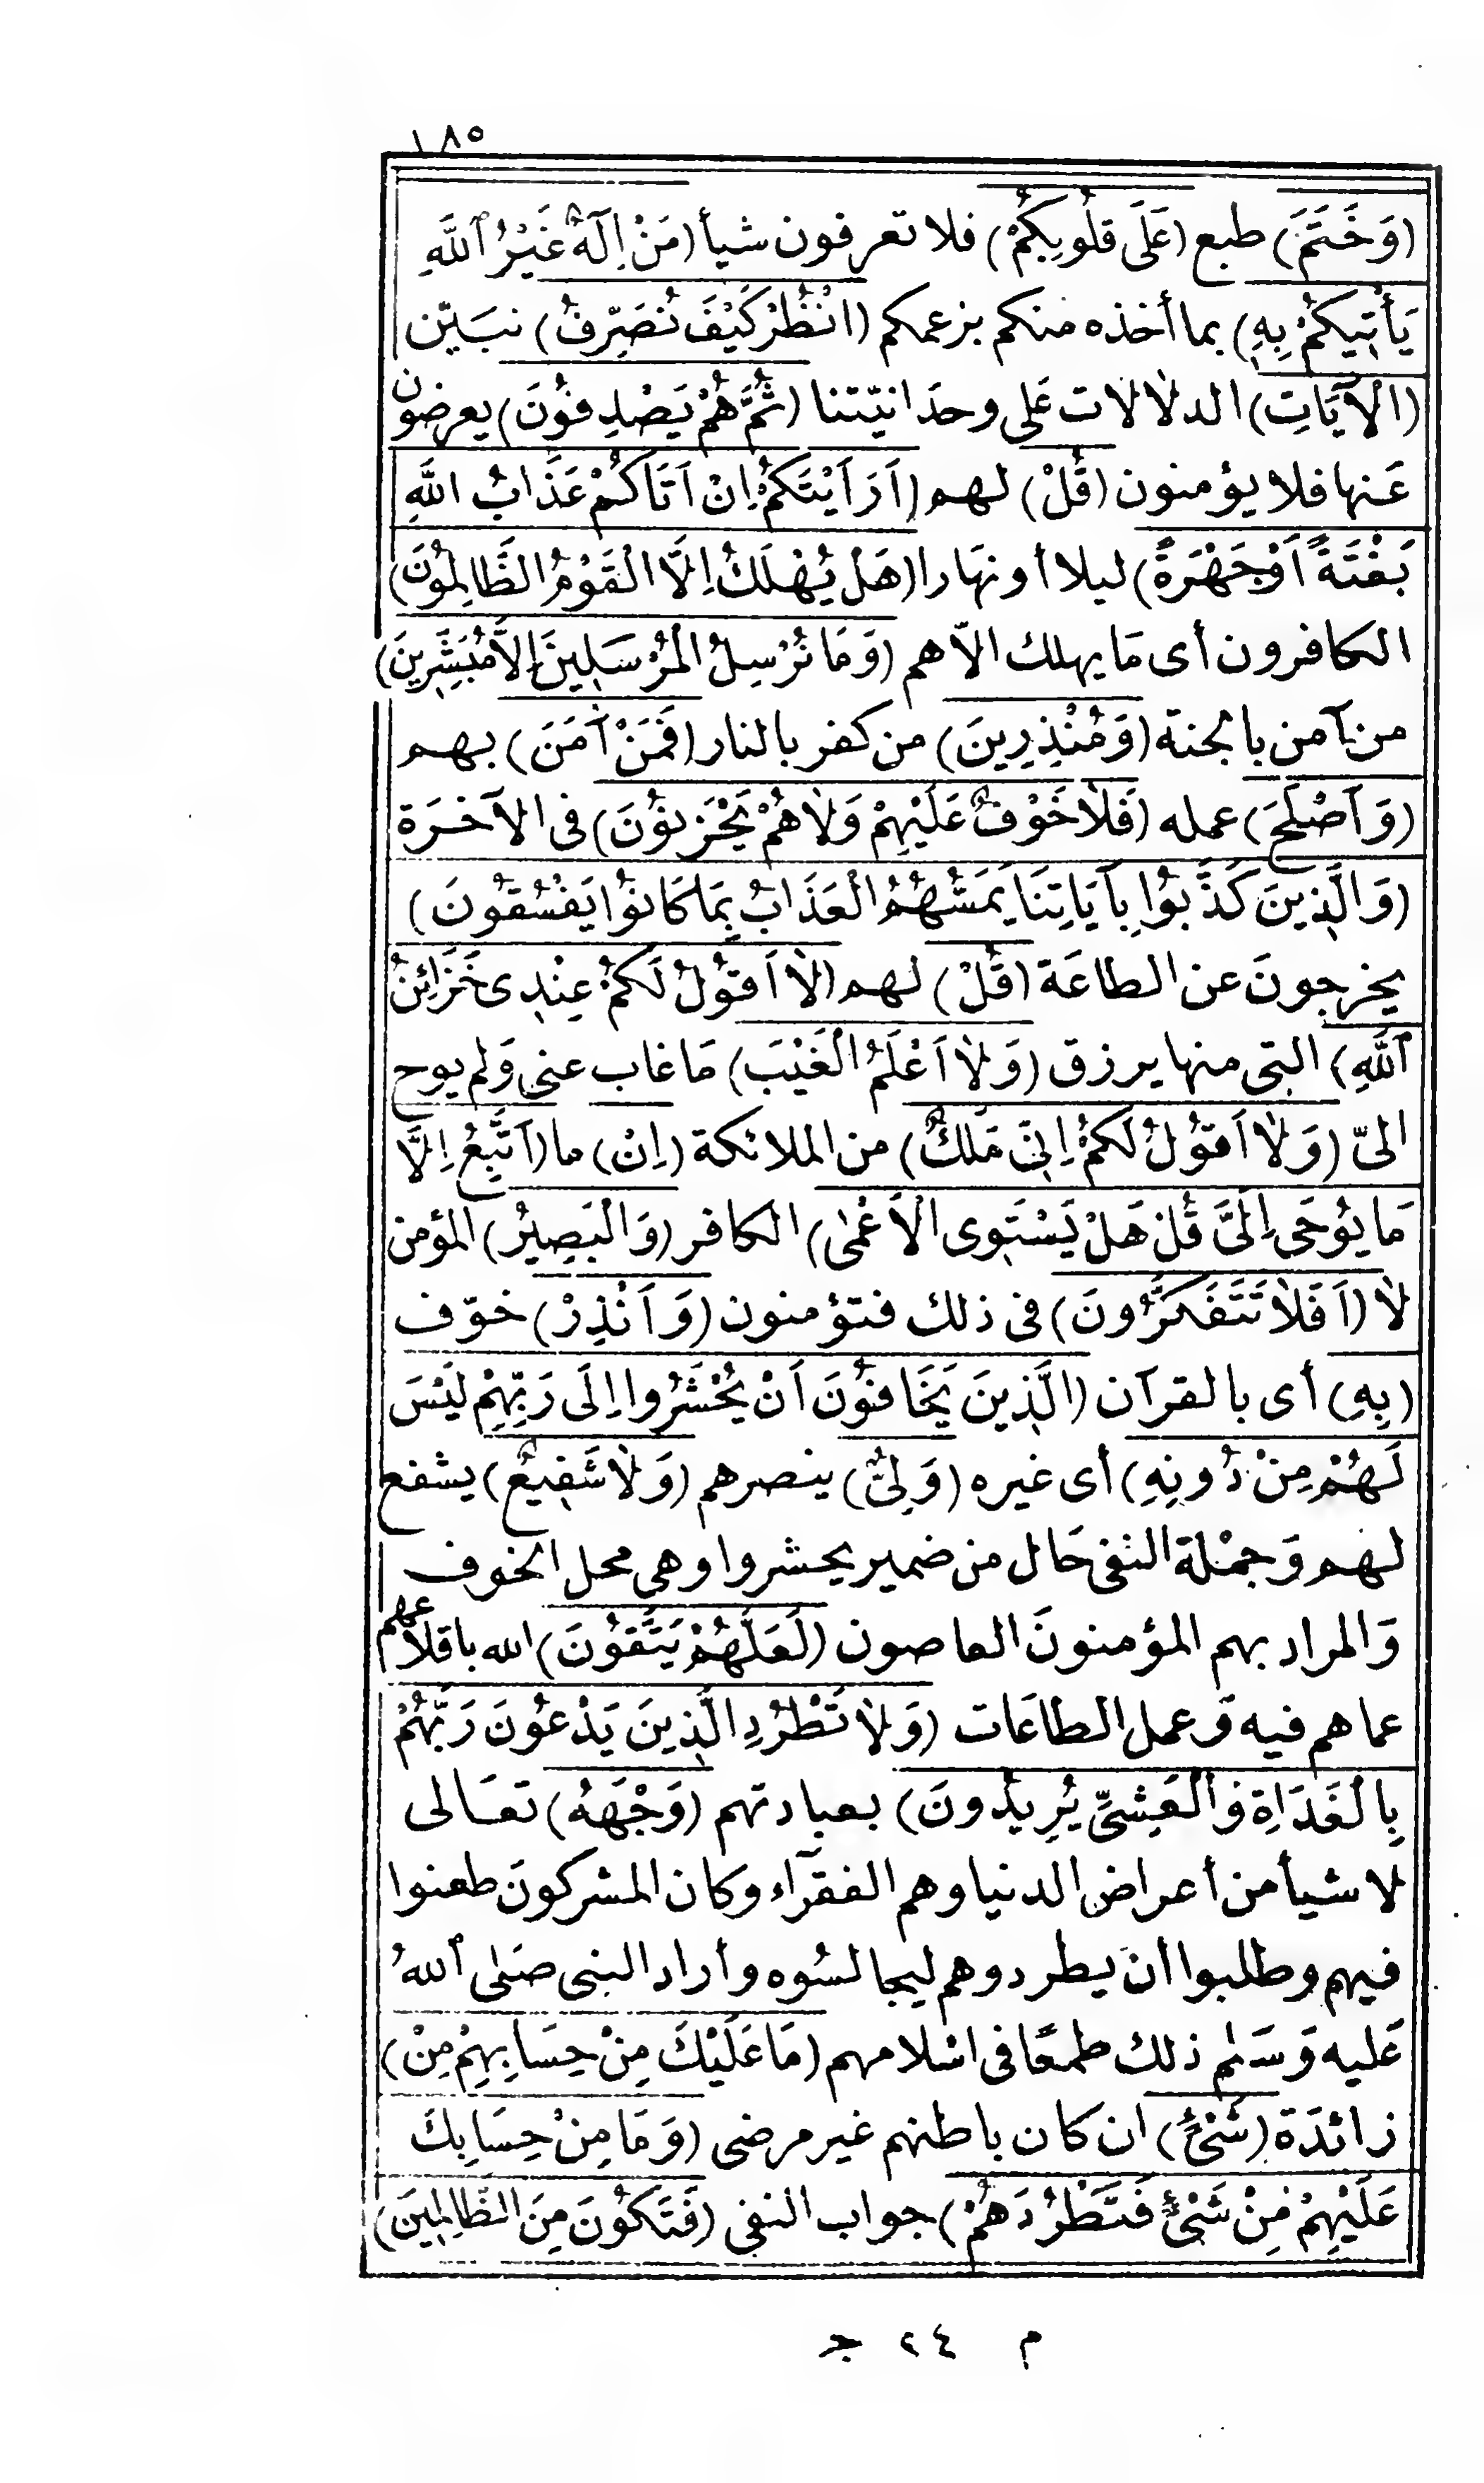 ١٨٥
(وَخَتَمَ) طبع (عَلَى قُلُوبِكُمْ) فلا تعرفون شيأ (مَنْ اِلَهٌ غَيْرُ ٱللَّهِ
يَأْتِيكُمْ بِهِ) بما أخذه منكم بزعمكم (انْظُرْ كَيْفَ نُصَرِّفُ) نبَيّن
(الْآيَاتِ) الدلالات عَلى وحدَانيّتنا (ثُمَّ هُمْ يَصْدِفُونَ) يعرضون
عَنها فلا يؤمنون (قُلْ) لهم (اَرَاَيْتَكُمْ اِنْ اَتَاكُمْ عَذَابُ اللَّهِ
بَغْتَةً اَوْ جَهْرَةً) ليلا أو نهَارا (هَلْ يُهْلَكُ اِلَّا الْقَوْمُ الظَّالِمُونَ)
الكافرون أى مَا يهلك الاّ هم (وَمَا نُرْسِلُ الْمُرْسَلِينَ اِلاَّ مُبَشِّرِينَ)
من آمن بالجنة (وَمُنْذِرِينَ) من كفر بالنار (فَمَنْ آمَنَ) بهم
(وَاَصْلَحَ) عمله (فَلاَ خَوْفٌ عَلَيْهِمْ وَلاَ هُمْ يَحْزَنُونَ) فى الآخَرَة
(وَالَّذِينَ كَذَّبُوا بِآيَاتِنَا يَمَسُّهُمُ الْعَذَابُ بِمَا كَانُوا يَفْسُقُونَ)
يخرجونَ عن الطاعَة (قُلْ) لهم (لاَ اَقُولُ لَكُمْ عِنْدِى خَزَائِنُ
ٱللَّهِ) التى منها يرزق (وَلاَ اَعْلَمُ الْغَيْبَ) مَا غاب عنى وَلم يوح
الىّ (وَلاَ اَقُولُ لَكُمْ اِنِّى مَلَكٌ) من الملائكة (اِنْ) ما (اَتَّبِعُ اِلَّا
مَا يُوحَى اِلَىَّ قُلْ هَلْ يَسْتَوِى الْاَعْمَى) الكافر (وَالْبَصِيرُ) المؤمن
لاَ (اَفَلاَ تَتَفَكَّرُونَ) فى ذلك فتؤمنون (وَاَنْذِرْ) خوّف
(بِهِ) أى بالقرآن (الَّذِينَ يَخَافُونَ اَنْ يُحْشَرُوا اِلَى رَبِّهِمْ لَيْسَ
لَهُمْ مِنْ دُونِهِ) أى غيره (وَلِىٌّ) ينصرهم (وَلاَ شَفِيعٌ) يشفع
لهم وَجمْلة النفى حَال من ضمير يحشروا وهى محل الخوف
وَالمراد بهم المؤمنونَ العاصون (لَعَلَّهُمْ يَتَّقُونَ) الله باقلاعهم
عما هم فيه وَعمل الطاعَات (وَلاَ تَطْرُدِ الَّذِينَ يَدْعُونَ رَبَّهُمْ
بِالْغَدَاةِ وَالْعَشِىِّ يُرِيدُونَ) بعبادتهم (وَجْهَهُ) تعَالى
لا شيأ من أعراض الدنيا وهم الفقرآء وكان المشركونَ طعنوا
فيهم وطلبوا أنَ يطردوهم ليجالسُوه وأراد النبى صَلى ٱللهُ
عَليه وَسَلم ذلك طمعًا فى اسْلامهم (مَا عَلَيْكَ مِنْ حِسَابِهِمْ مِنْ)
زائدَة (شَىْءٍ) ان كان باطنهم غير مرضى (وَمَا مِنْ حِسَابِكَ
عَلَيْهِمْ مِنْ شَىْءٍ فَتَطْرُدَهُمْ) جواب النفى (فَتَكُونَ مِنَ الظَّالِمِينَ)
م ٢٤ جـ